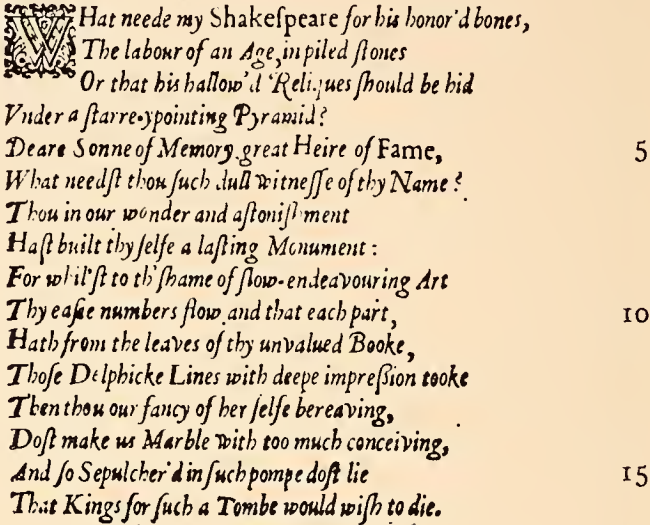 WHat neede my Shakeſpeare for his honor'd bones,
The labour of an Age, in piled ſtones
Or that his hallow'd Reliques ſhould be hid
Vnder a ſtarre-ypointing Pyramid?
Deare Sonne of Memory, great Heire of Fame, 5
What needſt thou ſuch dull witneſſe of thy Name?
Thou in our wonder and aſtoniſhment
Haſt built thy ſelfe a laſting Monument:
For whil'ſt to th' ſhame of ſlow-endeavouring Art
Thy eaſie numbers flow, and that each part, 10
Hath from the leaves of thy unvalued Booke,
Thoſe Delphicke Lines with deepe impreſſion tooke
Then thou our fancy of her ſelfe bereaving,
Doſt make us Marble with too much conceiving,
And ſo Sepulcher'd in ſuch pompe doſt lie 15
That Kings for ſuch a Tombe would wiſh to die.